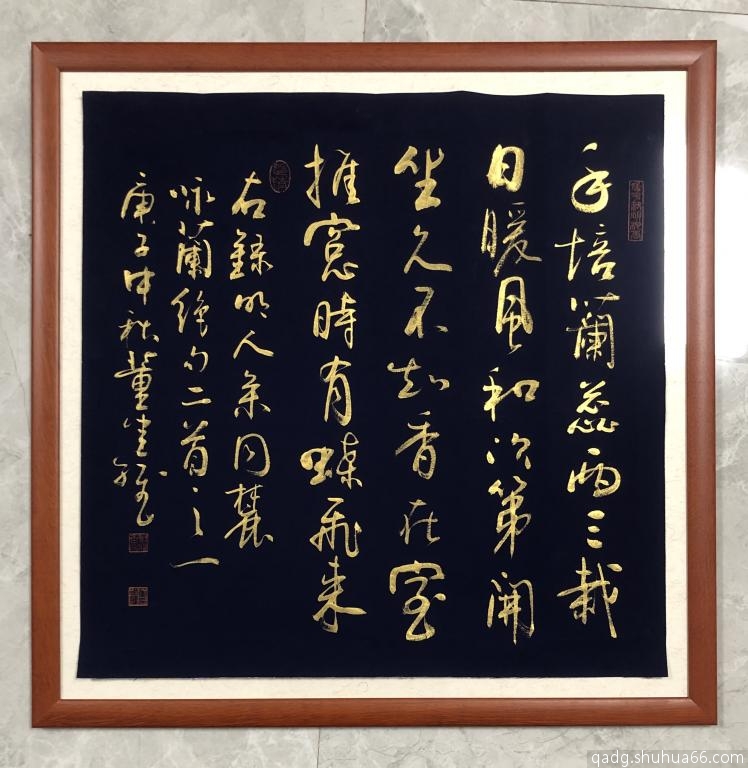 手培蘭蕊兩三栽
日暖風和次第開
坐久不知香在室
推窓時有蝶飛来
右錄明人余同麓
咏蘭絕句二首之一
庚子中秋董
qadg.shuhua66.com